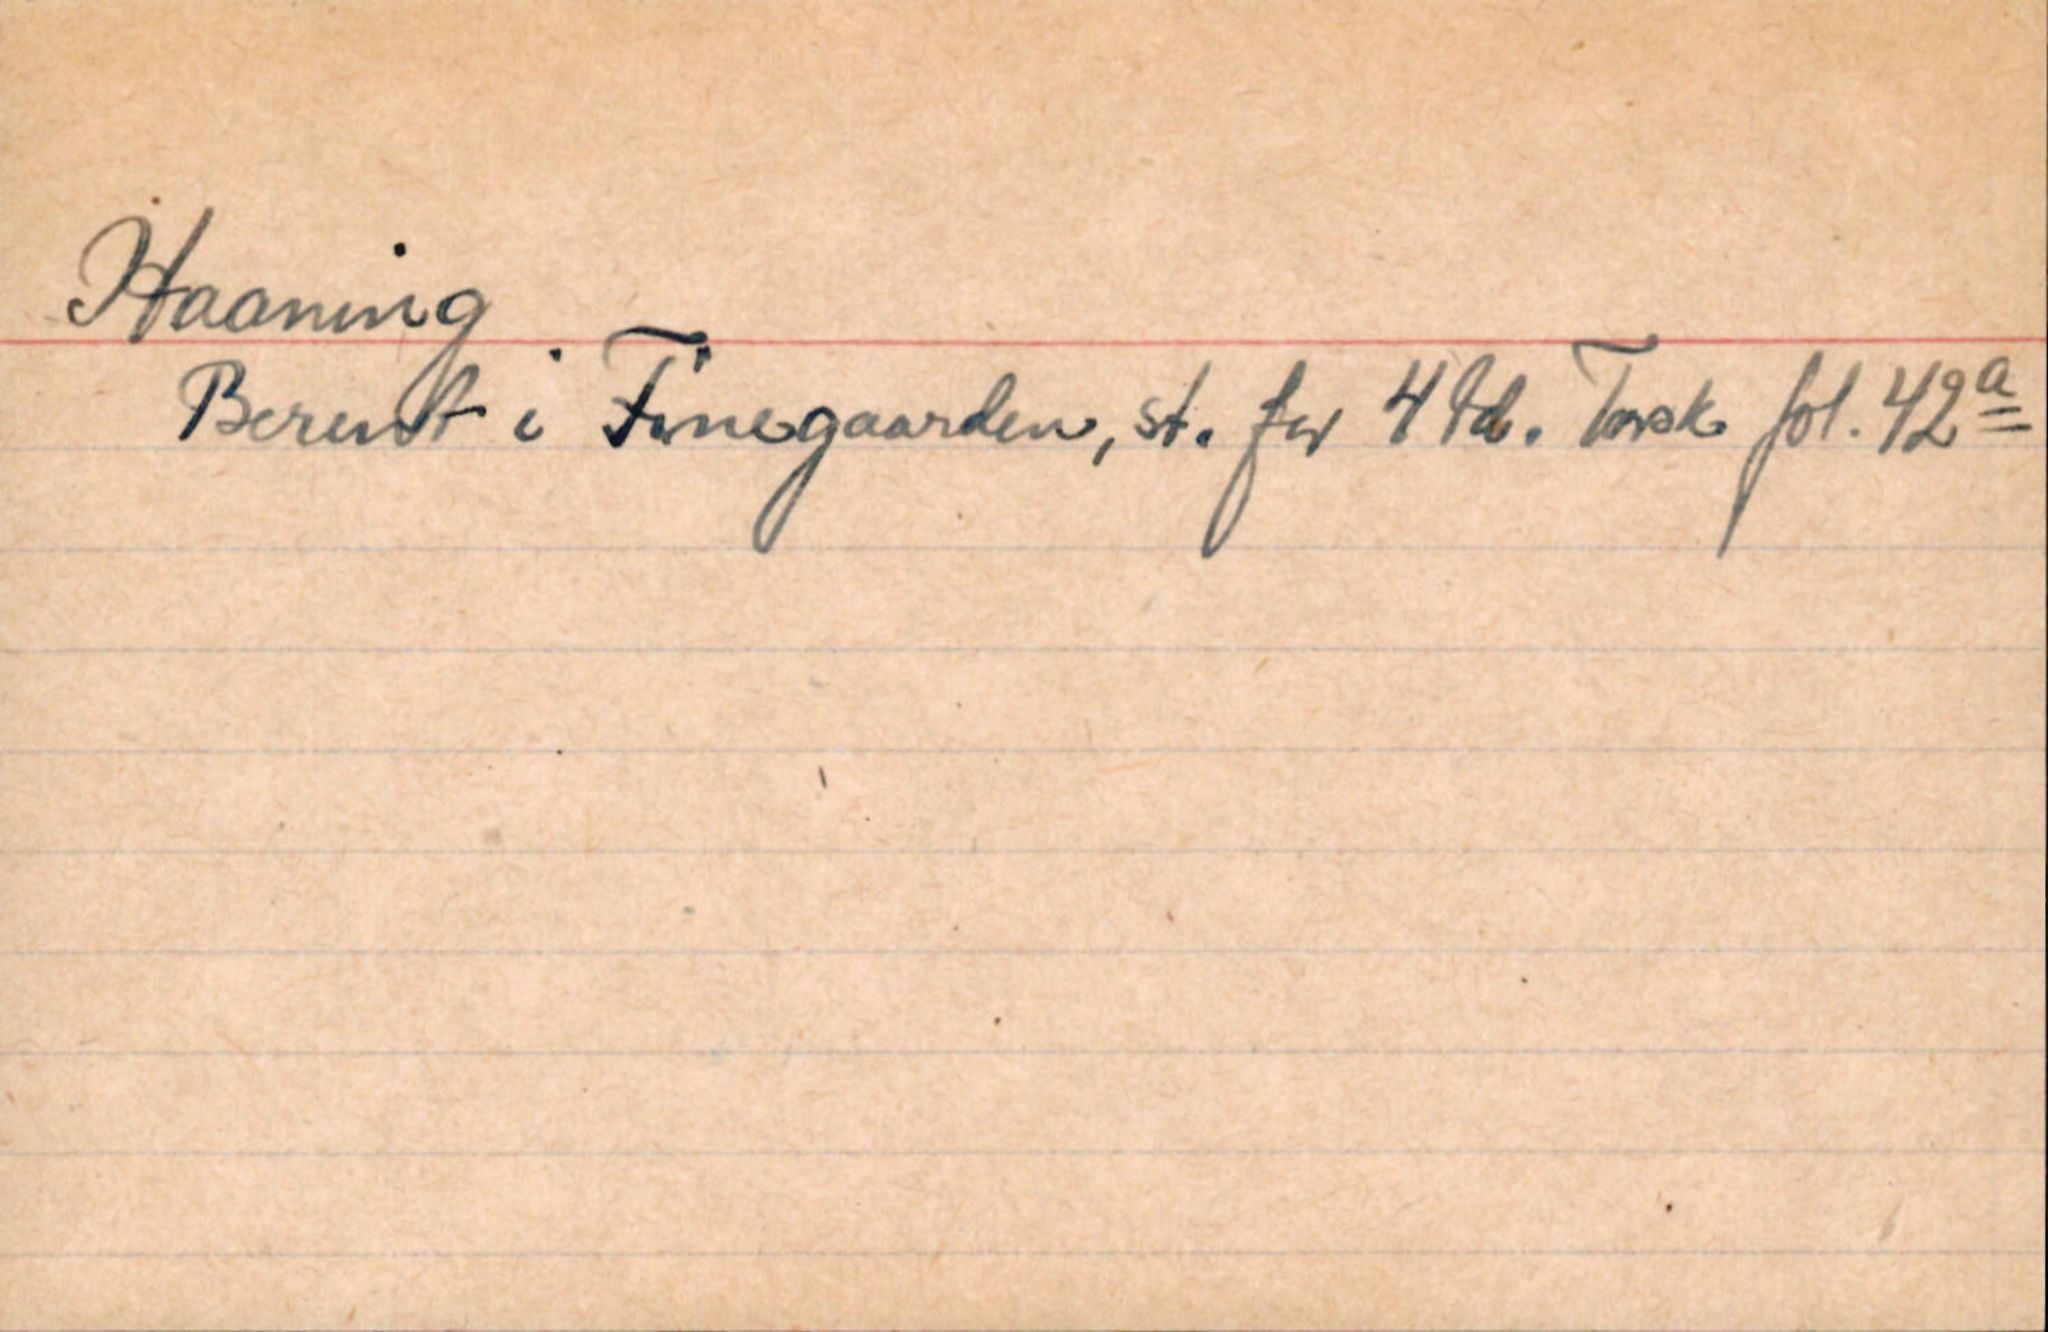 Haaning
Berent i Finegaarden, st. for 4 td. Torsk fol. 42a